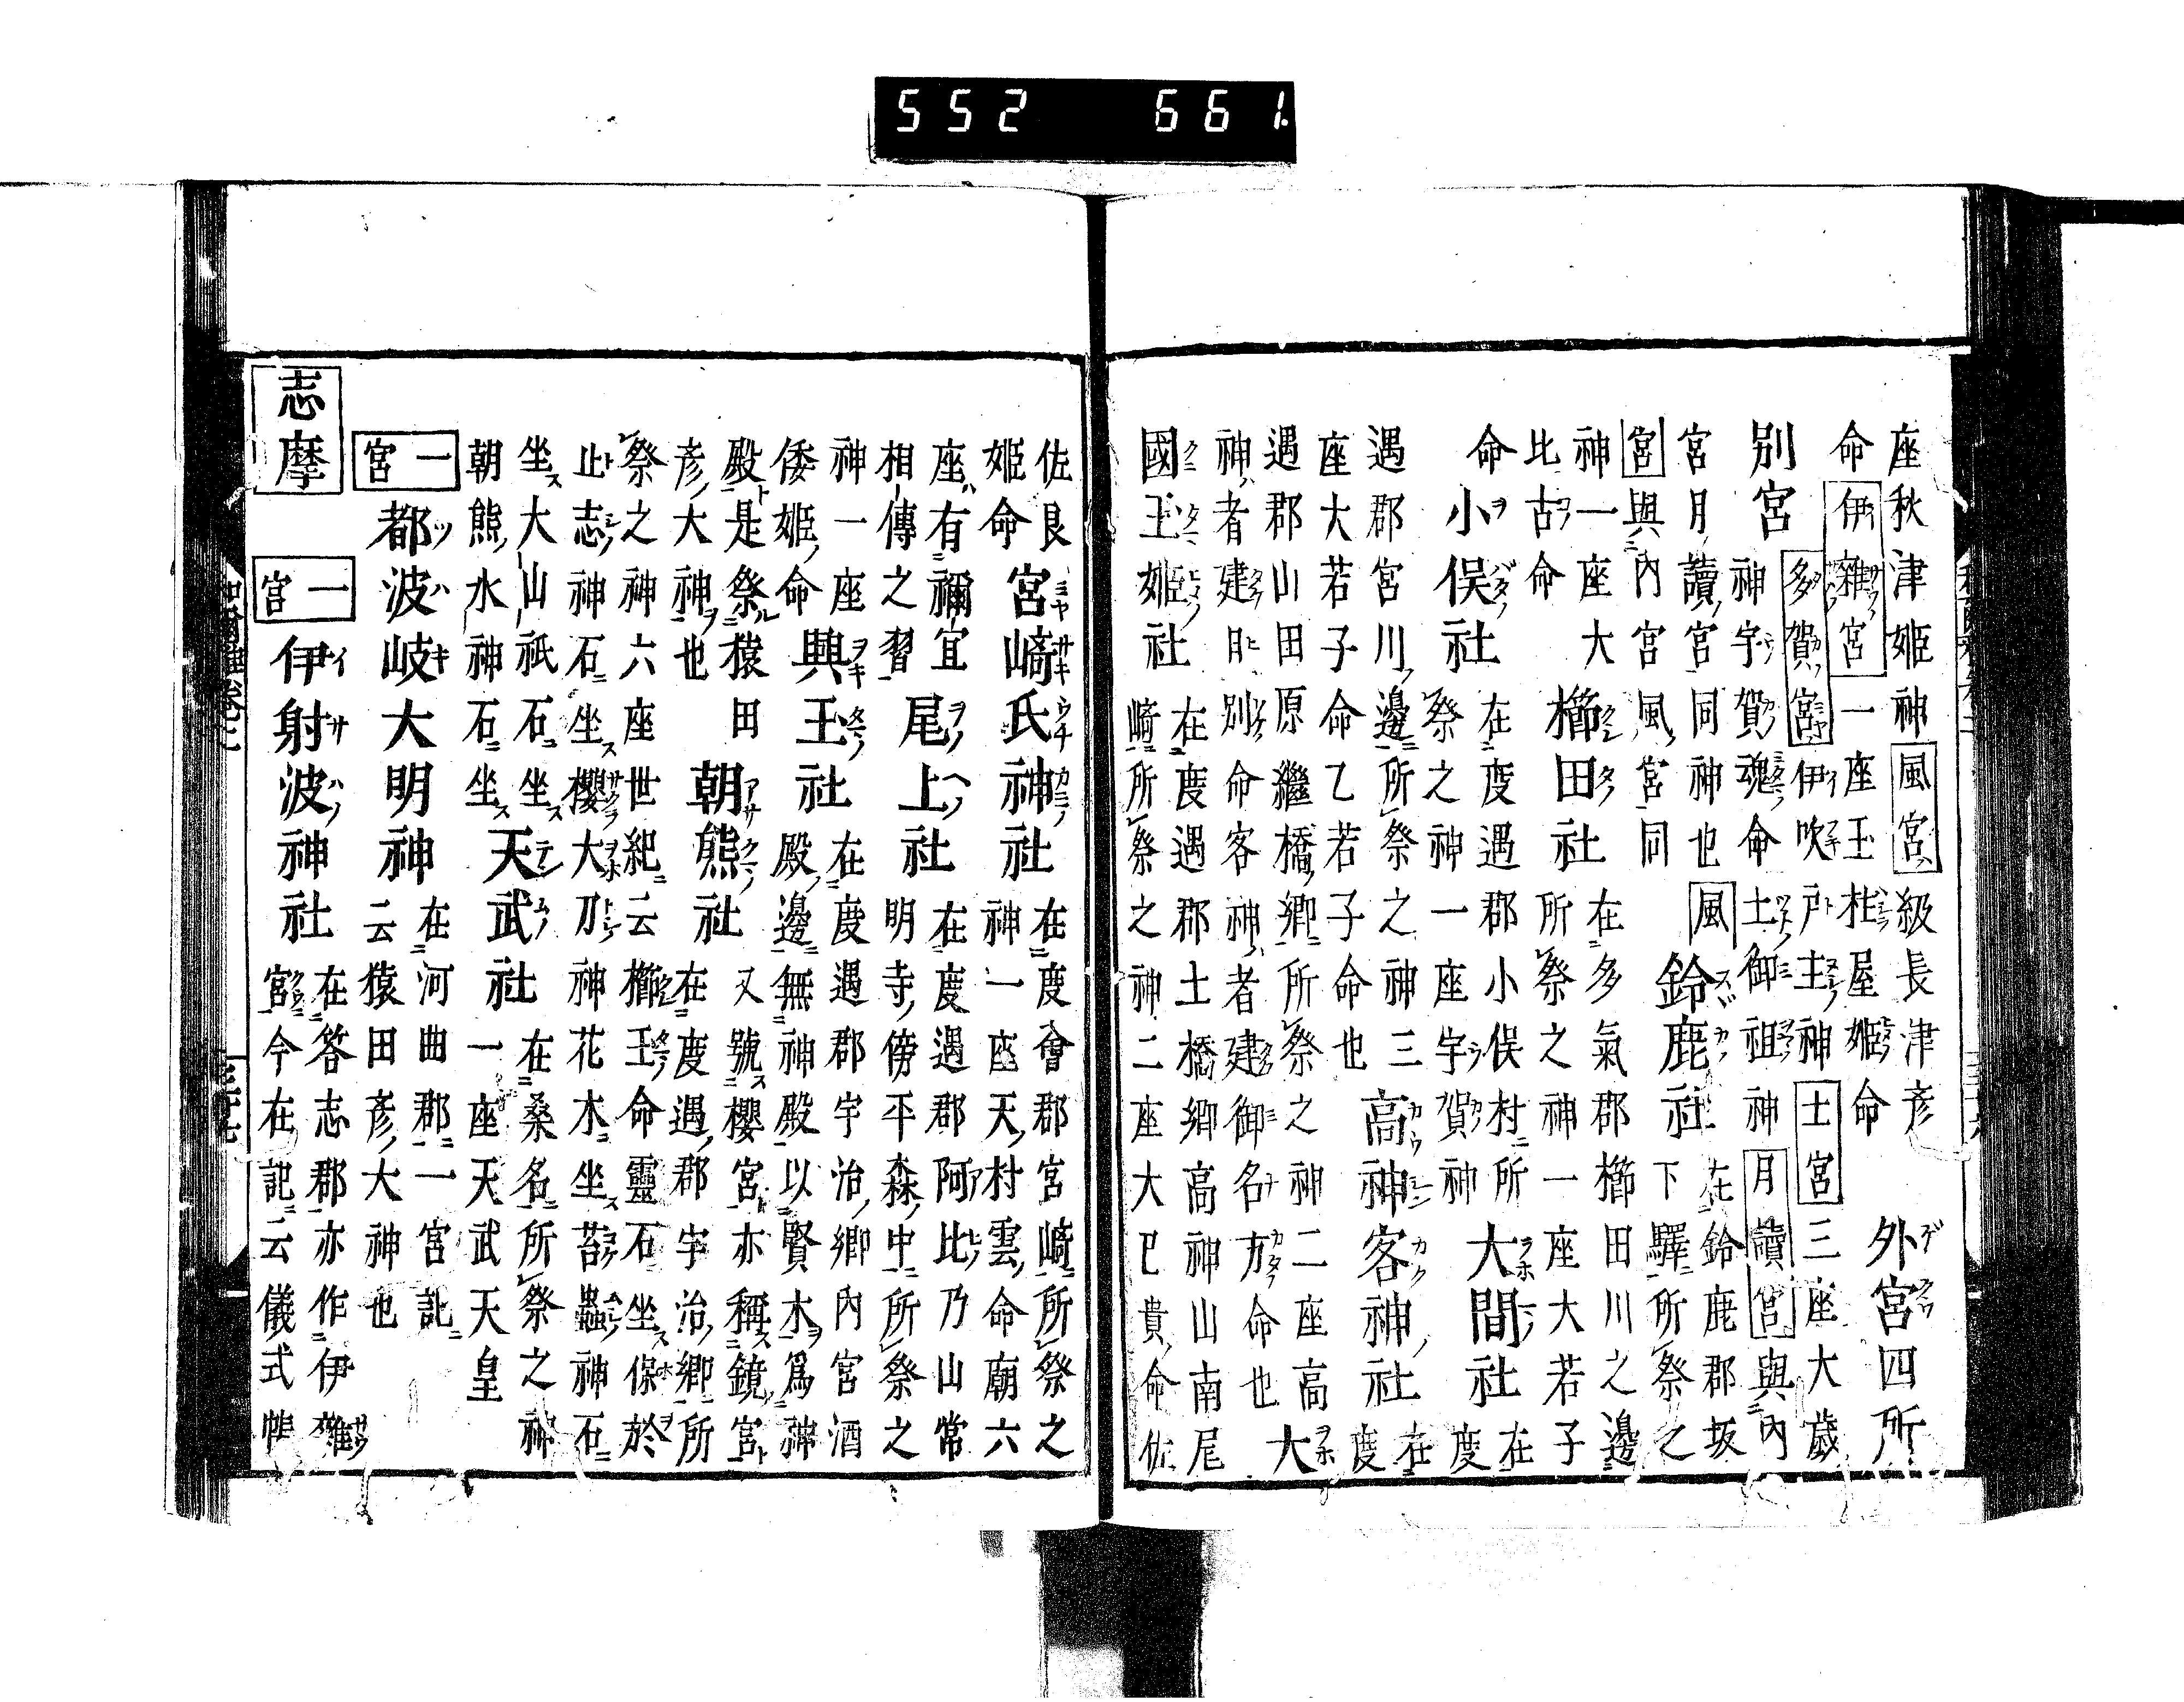 552 661
座秋津姫神風宮級長津彦
命伊雜宮一座玉柱屋姫命
外宮四所
別宮
多賀宮伊吹戸主神土宮三座大歳
神宇賀魂命土御祖神月讀宮與内
宮月讀宮同神也風
宮與内宮風宮同
鈴鹿社
在鈴鹿郡坂
下驛所祭之
神一座大
比古命
櫛田社
在多氣郡櫛田川之邊
所祭之神一座大若子
命
小俣社
在度遇郡小俣村所
祭之神一座宇賀神
大間社
在度
遇郡宮川邊所祭之神三
座大若子命乙若子命也
高神客神社
在度
遇郡山田原繼橋郷所祭之神二座高
神者建日別命客神者建御名方命也
大
國玉姫社
在度遇郡土橋郷高神山南尾
崎所祭之神二座大巳貴命佐
佐良
姫命
宮崎氏神社
在度會郡宮崎所祭之
神一座天村雲命廟六
座有禰宜
相傳之習
尾上社
在度遇郡阿比乃山常
明寺傍平森中所祭之
神一座
倭姫命
興玉社
在度遇郡宇治郷内宮酒
殿邊無神殿以賢木爲神
殿是祭猿田
彦大神也
朝熊社
又號櫻宮亦稱鏡宮
在度遇郡宇治郷所
祭之神六座世紀云櫛玉命靈石坐保於
止志神石坐櫻大刀神花木坐苔蟲神石
坐大山祇石坐
朝熊水神石坐
天武社
在桑名所祭之神
一座天武天皇
一宮
都波岐大明神
在河曲郡一宮記
云猿田彦大神也
志摩
一宮
伊射波神社
在答志郡亦作伊雜
宮今在記云儀式帳